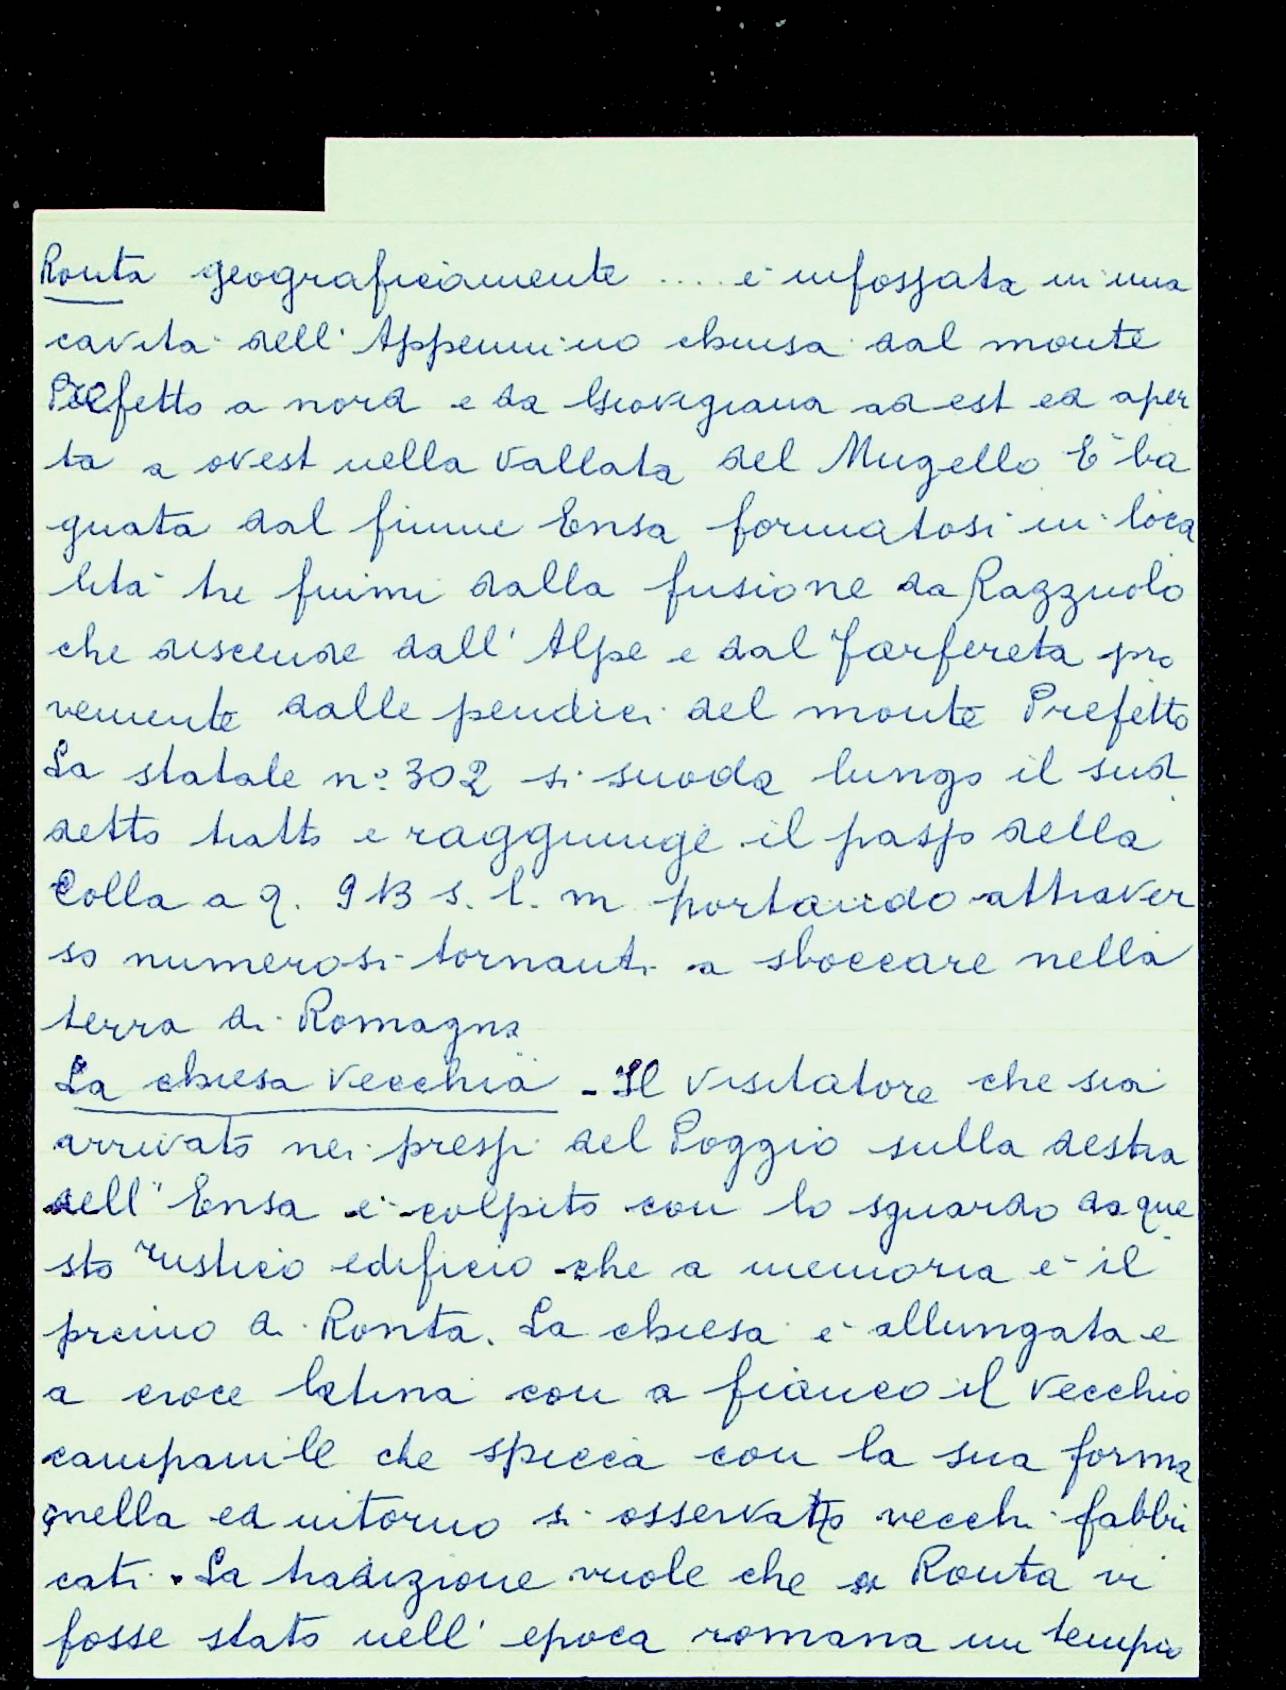 Ronta geograficamente .... è infossata in una
cavità dell'Appennino chiusa dal monte
Prefetto a nord e da Giovigiana ad est ed aper
ta a ovest nella vallata del Mugello È ba
gnata dal fiume Ensa formatosi in loca
lità tre fiumi dalla fusione da Razzuolo
che discende dall'Alpe e dal Farfereta pro
veniente dalle pendici del monte Prefetto
La statale n° 302 si snoda lungo il sud
detto tratto e raggiunge il passo della
Colla a q. 913 s. l. m portando attraver
so numerosi tornanti a sboccare nella
terra di Romagna
La chiesa vecchia - Il visitatore che sia
arrivato nei pressi del Poggio sulla destra
dell'Ensa è colpito con lo sguardo da que
sto rustico edificio che a memoria è il
primo di Ronta. La chiesa è allungata e
a croce latina con a fianco il vecchio
campanile che spicca con la sua forma
snella ed intorno si vecchi fabbri
cati. La tradizione vuole che a Ronta vi
fosse stato nell'epoca romana un tempio